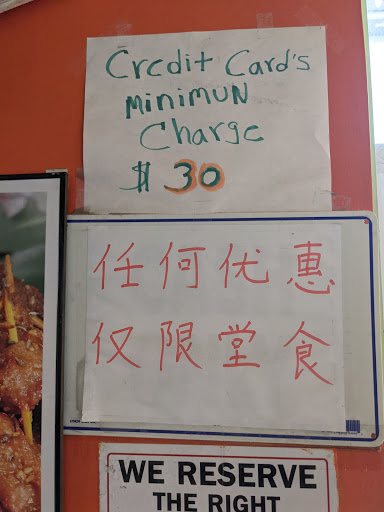 Credit Card's
minimuN
Charge
$ 30
任何优惠
仅限堂食
WE RESERVE
THE RIGHT